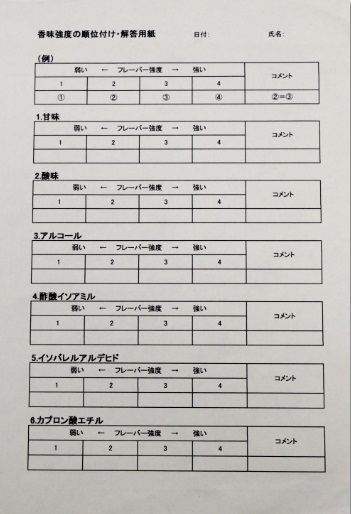 香味強度の順位付け・解答用紙 日付: 氏名:
(例)
弱い ← フレーバー強度 → 強い コメント
1 2 3 4
① ② ③ ④ ②=③
1.甘味
弱い ← フレーバー強度 → 強い コメント
1 2 3 4
2.酸味
弱い ← フレーバー強度 → 強い コメント
1 2 3 4
3.アルコール
弱い ← フレーバー強度 → 強い コメント
1 2 3 4
4.酢酸イソアミル
弱い ← フレーバー強度 → 強い コメント
1 2 3 4
5.イソバレルアルデヒド
弱い ← フレーバー強度 → 強い コメント
1 2 3 4
6.カプロン酸エチル
弱い ← フレーバー強度 → 強い コメント
1 2 3 4